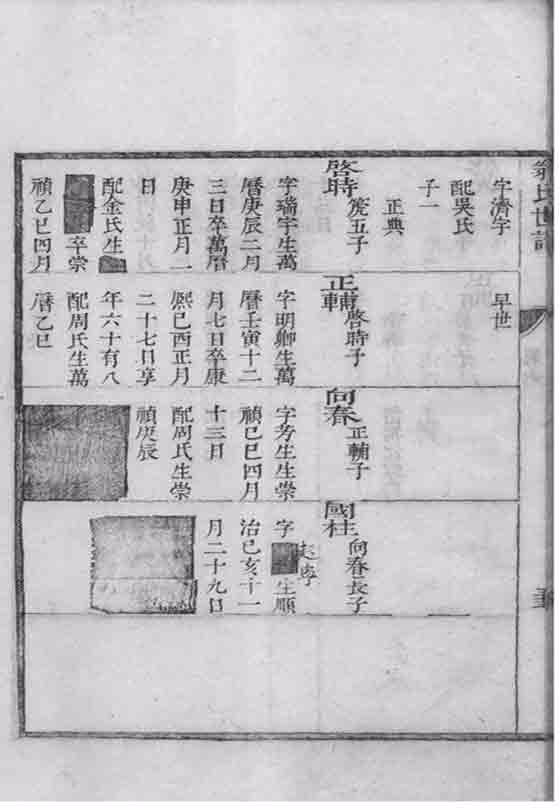 氏世譜
字濟宇
配吳氏
子一
正典
啓時 箎五子
字瑞宇生萬
曆庚辰二月
三日卒萬曆
庚申正月一
日
配金氏生
卒崇
禎乙巳四月
早世
正輔 啓時子
字明卿生萬
曆壬寅十二
月七日卒康
熙己酉正月
二十七日享
年六十有八
配周氏生萬
曆乙巳
向春 正輔子
字芳生生崇
禎己巳四月
十三日
配周氏生崇
禎庚辰
國柱 向春長子
字 生順
治己亥十一
月二十九日